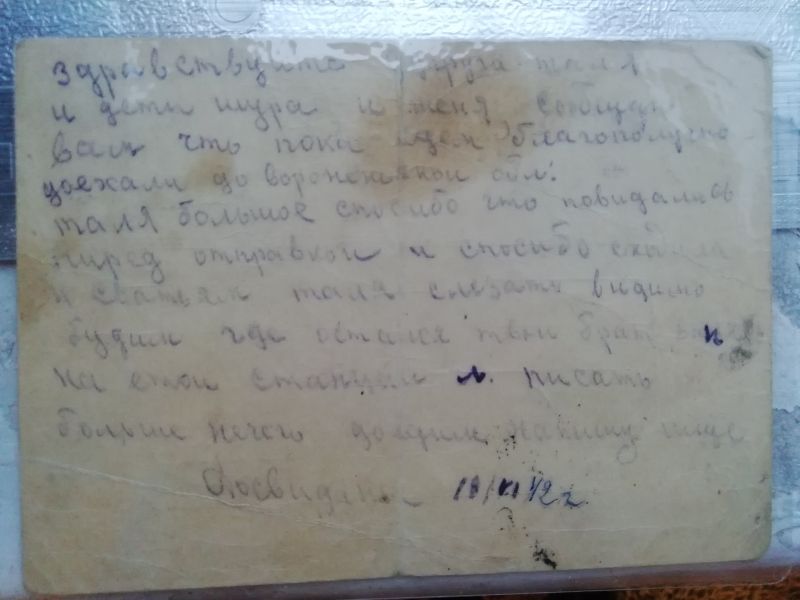 здравствуйте друга таля
и дети шура и женя собщаю
вам что пока едем благополучно
доехали до воронежской обл:
таля большое спосибо что повидались
перед отправкой и спосибо сходила
к сватьям таля слезать видимо
будим где остался твои брат
на етои станции л. писать
больше нечего доедим напишу ище
Досвидания 18/VI 42 г